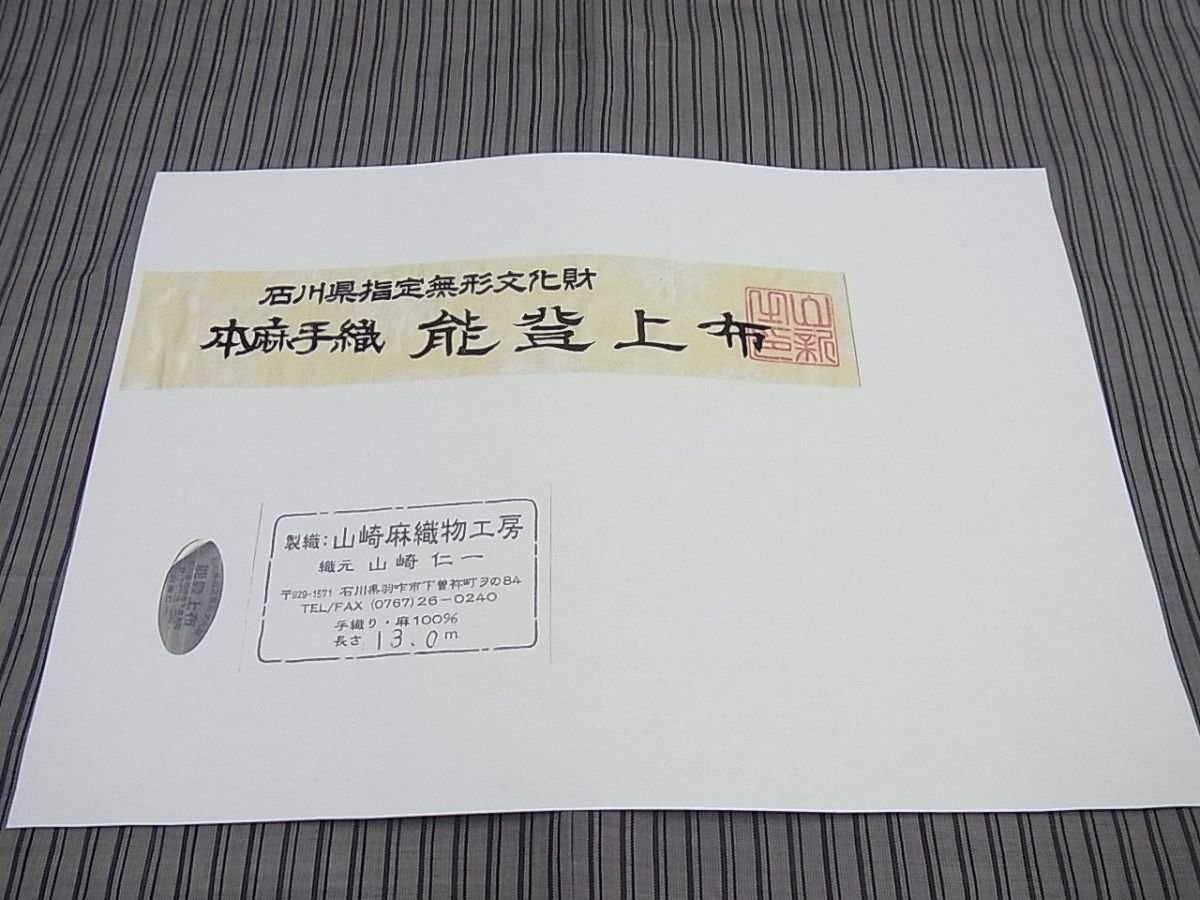 石川県指定無形文化財
本麻手織 能登上布
製織:山崎麻織物工房
織元 山崎仁一
〒929-1571 石川県羽咋市下曽祢町ヲの84
TEL/FAX (0767)26-0240
手織り・麻100%
長さ 13.0m
能登上布